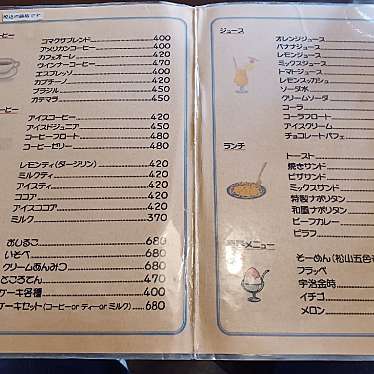 税込の価格です
ーヒー
コマクサブレンド 400
アメリカンコーヒー 400
カフェオーレ 420
ウインナーコーヒー 470
エスプレッソ 400
カプチーノ 420
ブラジル 450
ガテマラ 450
ーヒー
アイスコーヒー 420
アイスドジュニア 450
コーヒーフロート 480
コーヒーゼリー 480
レモンティ(ダージリン) 420
ミルクティ 420
アイスティ 420
ココア 420
アイスココア 420
ミルク 370
おしるこ 680
いそべ 680
クリームあんみつ 680
ところてん 470
ケーキ各種 400
ケーキセット(コーヒー or ティー or ミルク) 680
ジュース
オレンジジュース
バナナジュース
レモンジュース
ミックスジュース
トマトジュース
レモンスカッシュ
ソーダ水
クリームソーダ
コーラ
コーラフロート
アイスクリーム
チョコレートパフェ
ランチ
トースト
焼きサンド
ピザサンド
ミックスサンド
特製ナポリタン
和風ナポリタン
ビーフカレー
ピラフ
メニュー
そーめん(松山五色
フラッペ
宇治金時
イチゴ
メロン